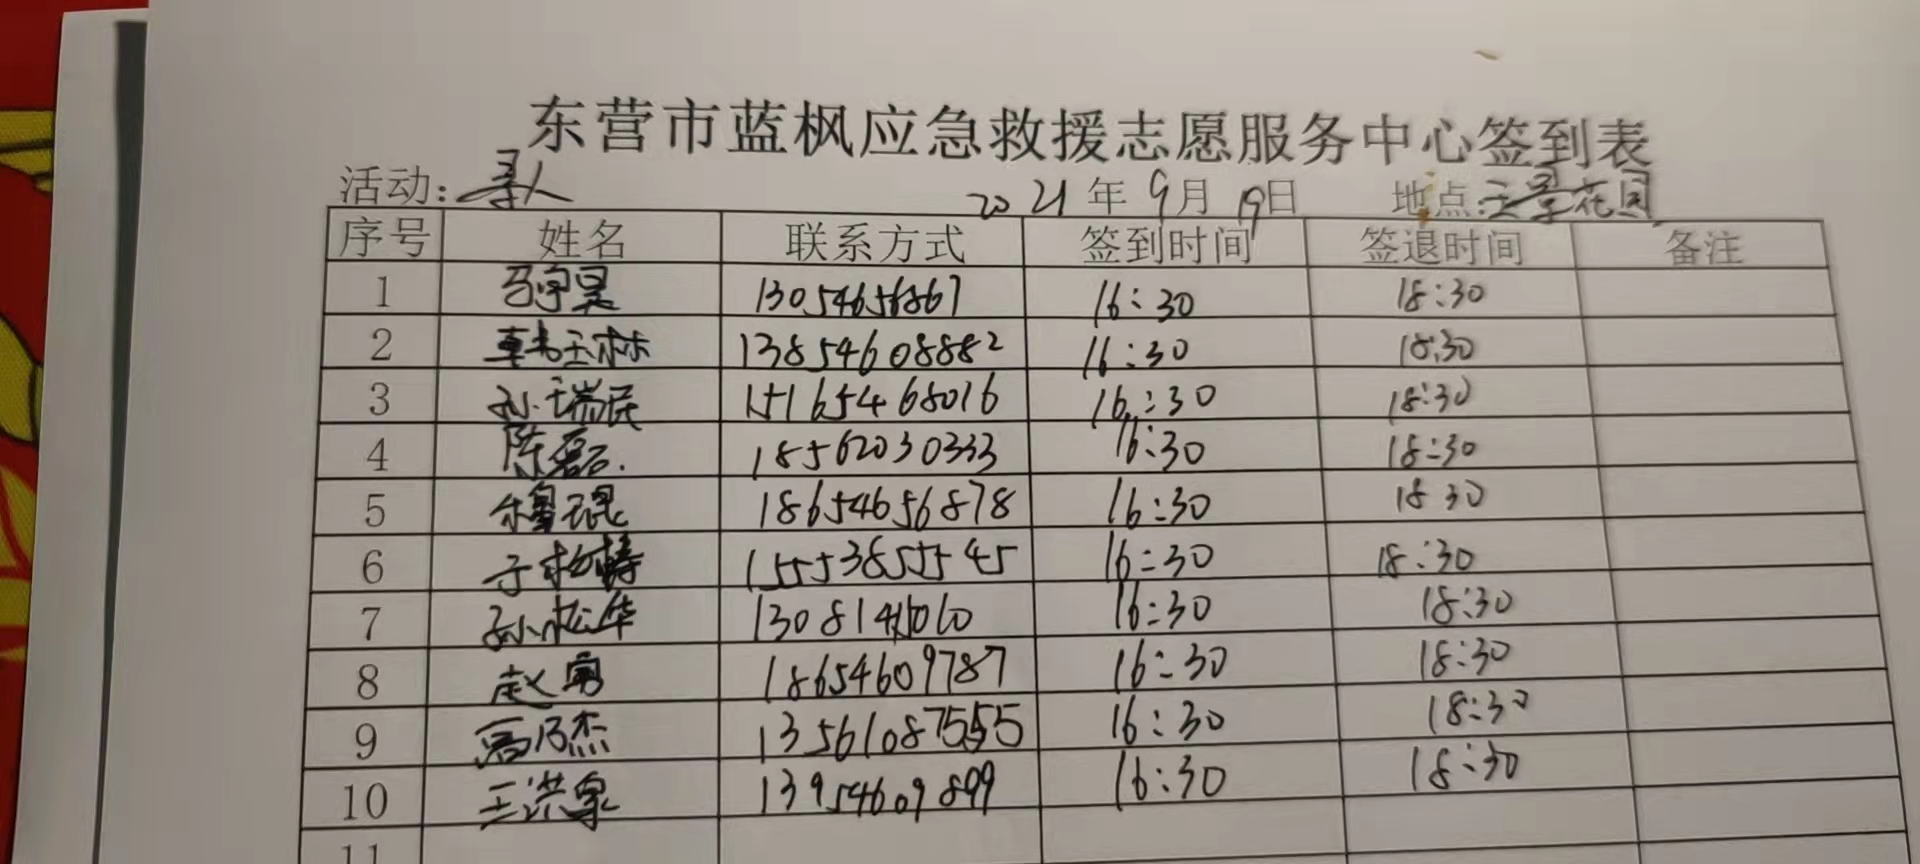 东营市蓝枫应急救援志愿服务中心签到表
活动:寻人 2021年9月19日 地点:花园
序号 姓名 联系方式 签到时间 签退时间 备注
1 马宇昊 13054656867 16:30 18:30
2 韩玉林 13854608882 16:30 18:30
3 孙瑞民 15165468016 16:30 18:30
4 陈磊 18562030333 16:30 18:30
5 穆琨 18654656878 16:30 18:30
6 于 15553855545 16:30 18:30
7 孙松华 16:30 18:30
8 赵勇 18654609787 16:30 18:30
9 高乃杰 13561087555 16:30 18:30
10 王洪泉 13954609899 16:30 18:30
11